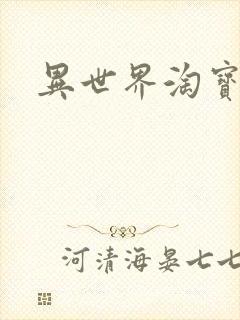 異世界淘寶
河清海晏七七